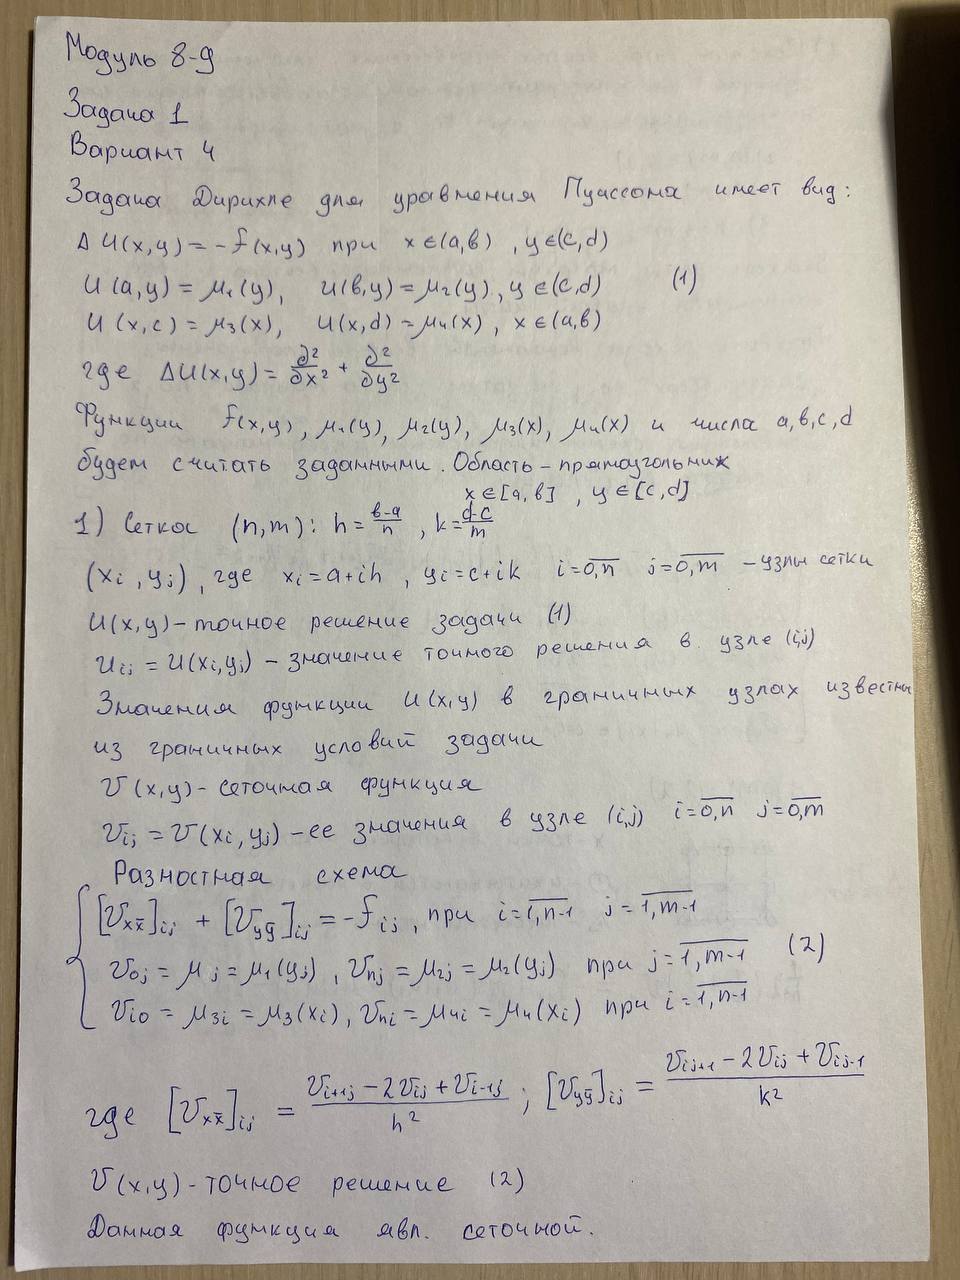 Модуль 8-9
Задача 1
Вариант 4
Задача Дирихле для уравнения Пуассона имеет вид:
Δ U(x,y) = -f(x,y) при x∈(a,b) , y∈(c,d)
U(a,y) = μ₁(y), U(b,y) = μ₂(y), y∈(c,d) (1)
U(x,c) = μ₃(x), U(x,d) = μ₄(x), x∈(a,b)
где ΔU(x,y) = ∂²/∂x² + ∂²/∂y²
Функции f(x,y), μ₁(y), μ₂(y), μ₃(x), μ₄(x) и числа a,b,c,d
будем считать заданными. Область – прямоугольник
x∈[a,b] , y∈[c,d]
1) Сетка (n,m): h = (b-a)/n , k = (d-c)/m
(xi , yj) , где xi = a+ih , yi = c+ik i=0,n j=0,m – узлы сетки
U(x,y) – точное решение задачи (1)
Uij = U(xi,yj) – значение точного решения в узле (i,j)
Значения функции U(x,y) в граничных узлах известны
из граничных условий задачи
V(x,y) – сеточная функция
Vij = V(xi,yj) – ее значения в узле (i,j) i=0,n j=0,m
Разностная схема
[Vxx̄]ij + [Vyȳ]ij = -fij, при i=1,n-1 j=1,m-1
V0j = μj = μ₁(yj) , Vnj = μ2j = μ₂(yj) при j=1,m-1 (2)
Vi0 = μ3i = μ₃(xi), Vni = μ4i = μ₄(xi) при i=1,n-1
где [Vxx̄]ij = (Vi+1j - 2Vij + Vi-1j)/h² ; [Vyȳ]ij = (Vij+1 - 2Vij + Vij-1)/k²
V(x,y) – точное решение (2)
Данная функция явл. сеточной.